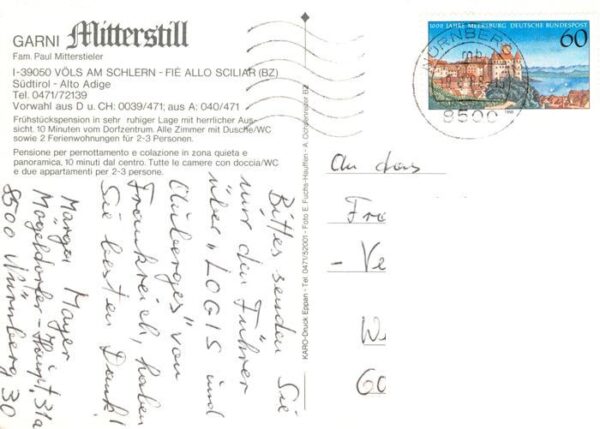 GARNI Mitterstill
Fam. Paul Mitterstieler
I-39050 VÖLS AM SCHLERN - FIÉ ALLO SCILIAR (BZ)
Südtirol - Alto Adige
Tel. 0471/72139
Vorwahl aus D u. CH: 0039/471; aus A: 040/471
Frühstückspension in sehr ruhiger Lage mit herrlicher Aus-
sicht. 10 Minuten vom Dorfzentrum. Alle Zimmer mit Dusche/WC
sowie 2 Ferienwohnungen für 2-3 Personen.
Pensione per pernottamento e colazione in zona quieta e
panoramica, 10 minuti dal centro. Tutte le camere con doccia/WC
e due appartamenti per 2-3 persone.
Bitte senden Sie
mir den Führer
über "LOGIS und
Auberges" von
Frankreich, haben
Sie besten Dank!
Margen Mayer
Mögeldorfer-Haupt 31a
8500 Nürnberg 30
KARO-Druck Eppan - Tel. 0471/52001 - Foto E. Fuchs-Hauffen - A. Überlingen BZ
1000 JAHRE MEERSBURG DEUTSCHE BUNDESPOST
60
NÜRNBERG
8500
An das
Fra
- Ve
W
60